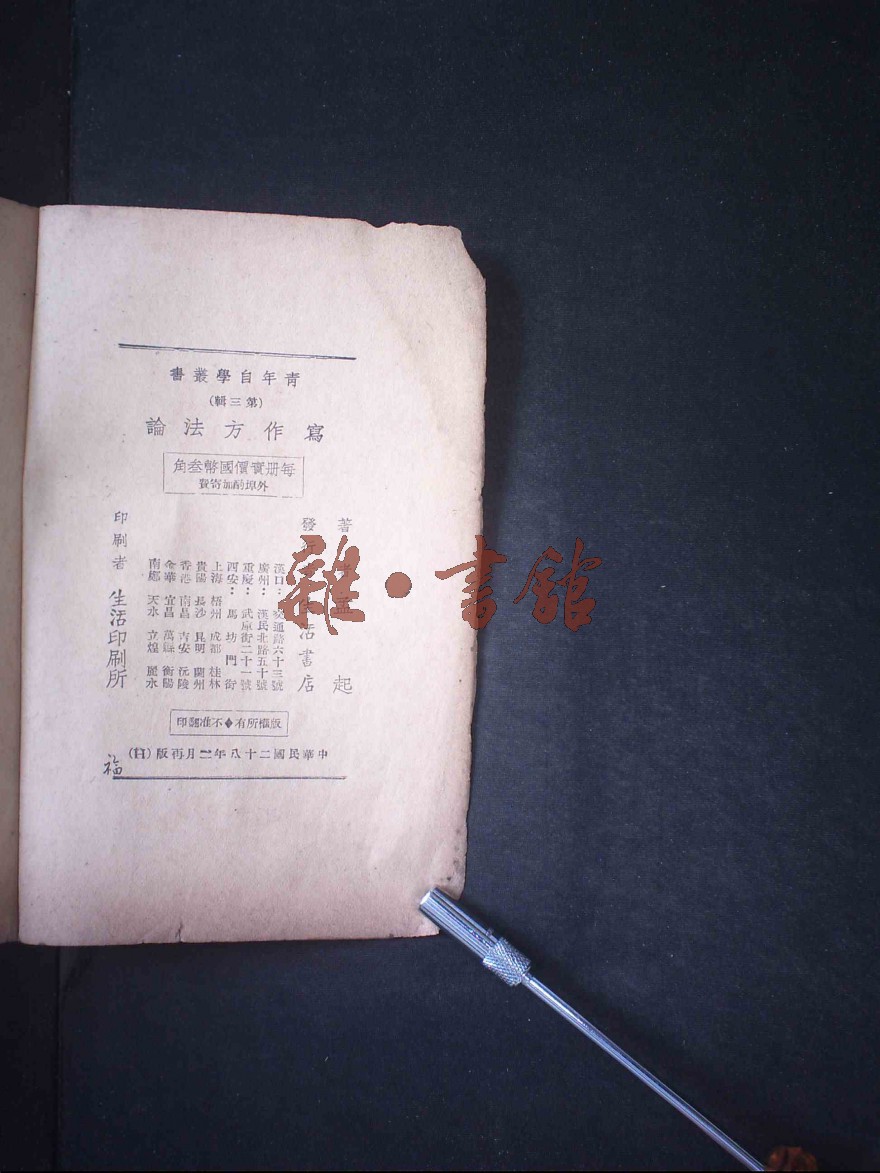 青年自學叢書
(第三輯)
寫作方法論
每册實價國幣叁角
外埠酌加寄費
著者 孟起
發行 生活書店
漢口：交通路六十三號
廣州：漢民北路五十號
重慶：武庫街二十一號
西安：馬坊門街
上海 梧州 成都 桂林
貴陽 長沙 昆明 蘭州
香港 南昌 吉安 沅陵
金華 宜昌 萬縣 衡陽
南鄭 天水 立煌 麗水
印刷者 生活印刷所
版權所有◆不准翻印
中華民國二十八年二月再版
福
雜·書館